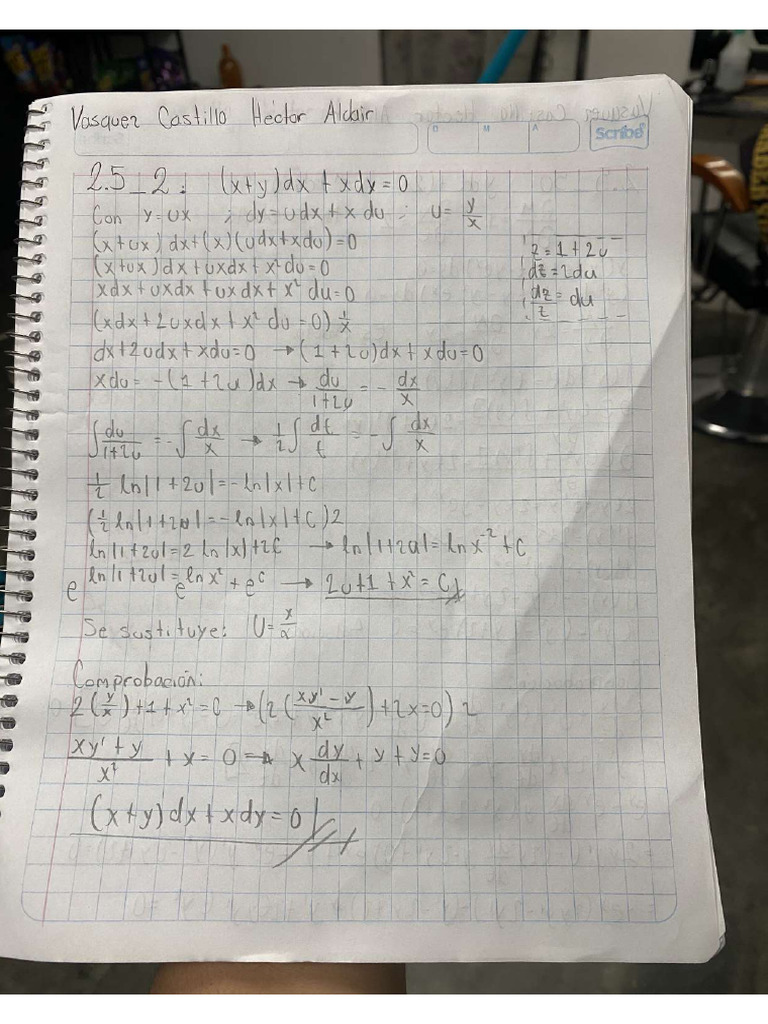 Vasquez Castillo Héctor Aldair
D M A
Scribe
2.5_2. (x+y)dx + xdy = 0
Con y=ux ; dy=udx+x du ; u= y/x
(x+ux) dx+(x)(udx+xdu)=0
z=1+2u
(x+ux)dx+uxdx+x²du=0
dz=2du
xdx+uxdx+uxdx+x² du=0
dz/2 = du
(xdx+2uxdx+x² du=0) 1/x
dx+2udx+xdu=0 → (1+2u)dx+xdu=0
xdu= -(1+2u)dx → du/1+2u = - dx/x
∫ du/1+2u = -∫ dx/x → 1/2 ∫ dt/t = -∫ dx/x
1/2 ln|1+2u|=-ln|x|+c
(1/2 ln|1+2u|=-ln|x|+c)2
ln|1+2u|=2 ln|x|+2c → ln|1+2u|=ln x⁻²+c
e ln|1+2u| = e ln x² + e^c → 2u+1+x²=c
Se sustituye: U=
Comprobación:
2(y/x)+1+x²=c → (2(xy'-y/x²)+2x=0) 2
xy'+y/x² + x = 0 → x dy/dx + y+y=0
(x+y)dx+xdy=0